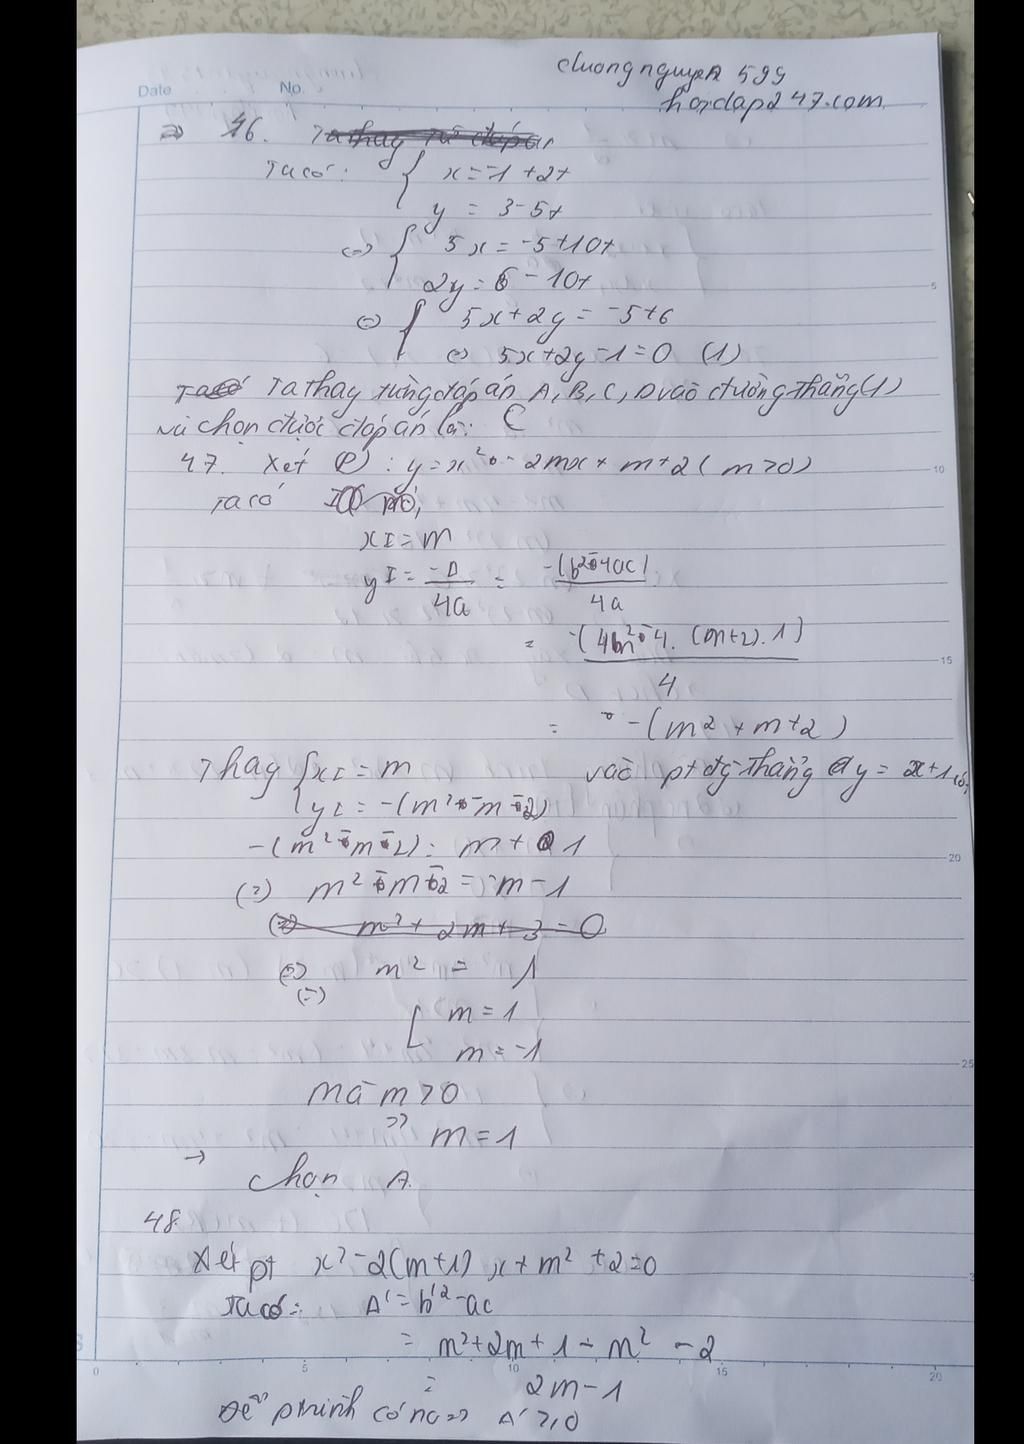 chuongnguyen 599
hoidap247.com
Date No.
=> 46.
Ta có: { x = -1 + 2t
y = 3 - 5t
<=> { 5x = -5 + 10t
2y = 6 - 10t
<=> { 5x + 2y = -5 + 6
<=> 5x + 2y - 1 = 0 (1)
Ta thay từng đáp án A, B, C, D vào đường thẳng (1)
và chọn được đáp án là: C
47. Xét (P): y = x² - 2mx + m + 2 (m > 0)
Ta có
xI = m
yI = -Δ/4a = -(b² - 4ac)/4a
= -(4m² - 4. (m+2). 1)/4
= -(m² + m + 2)
Thay { xI = m vào pt đg thẳng y = x + 1
yI = -(m² - m - 2)
-(m² - m - 2) = m + 1
(=) m² - m - 2 = -m - 1
m² + 2m + 3 = 0
(=) m² = 1
(=)
[ m = 1
m = -1
Mà m > 0
=> m = 1
→ Chọn A.
48.
Xét pt x² - 2(m+1) x + m² + 2 = 0
Ta có: Δ' = b'² - ac
= m² + 2m + 1 - m² - 2
= 2m - 1
Để ptrình có no => Δ' ≥ 0
5
10
15
20
25
0 5 10 15 20